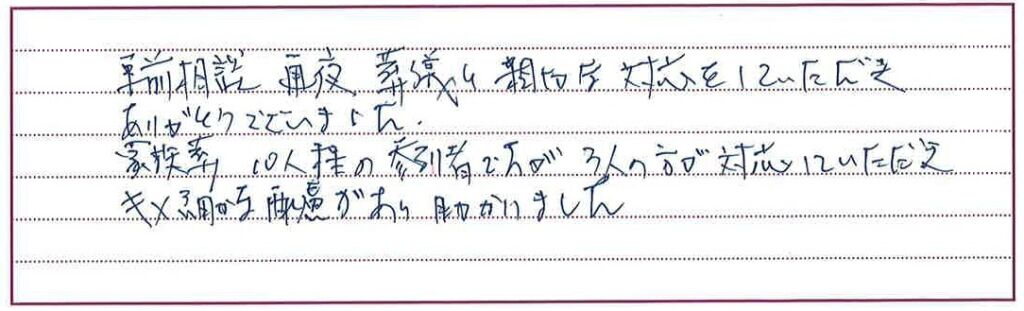 事前相談、通夜、葬儀と親切な対応をしていただき
ありがとうございました.
家族葬、10人程の参列者ですが 3人の方が対応していただき
キメ細かな配慮があり助かりました